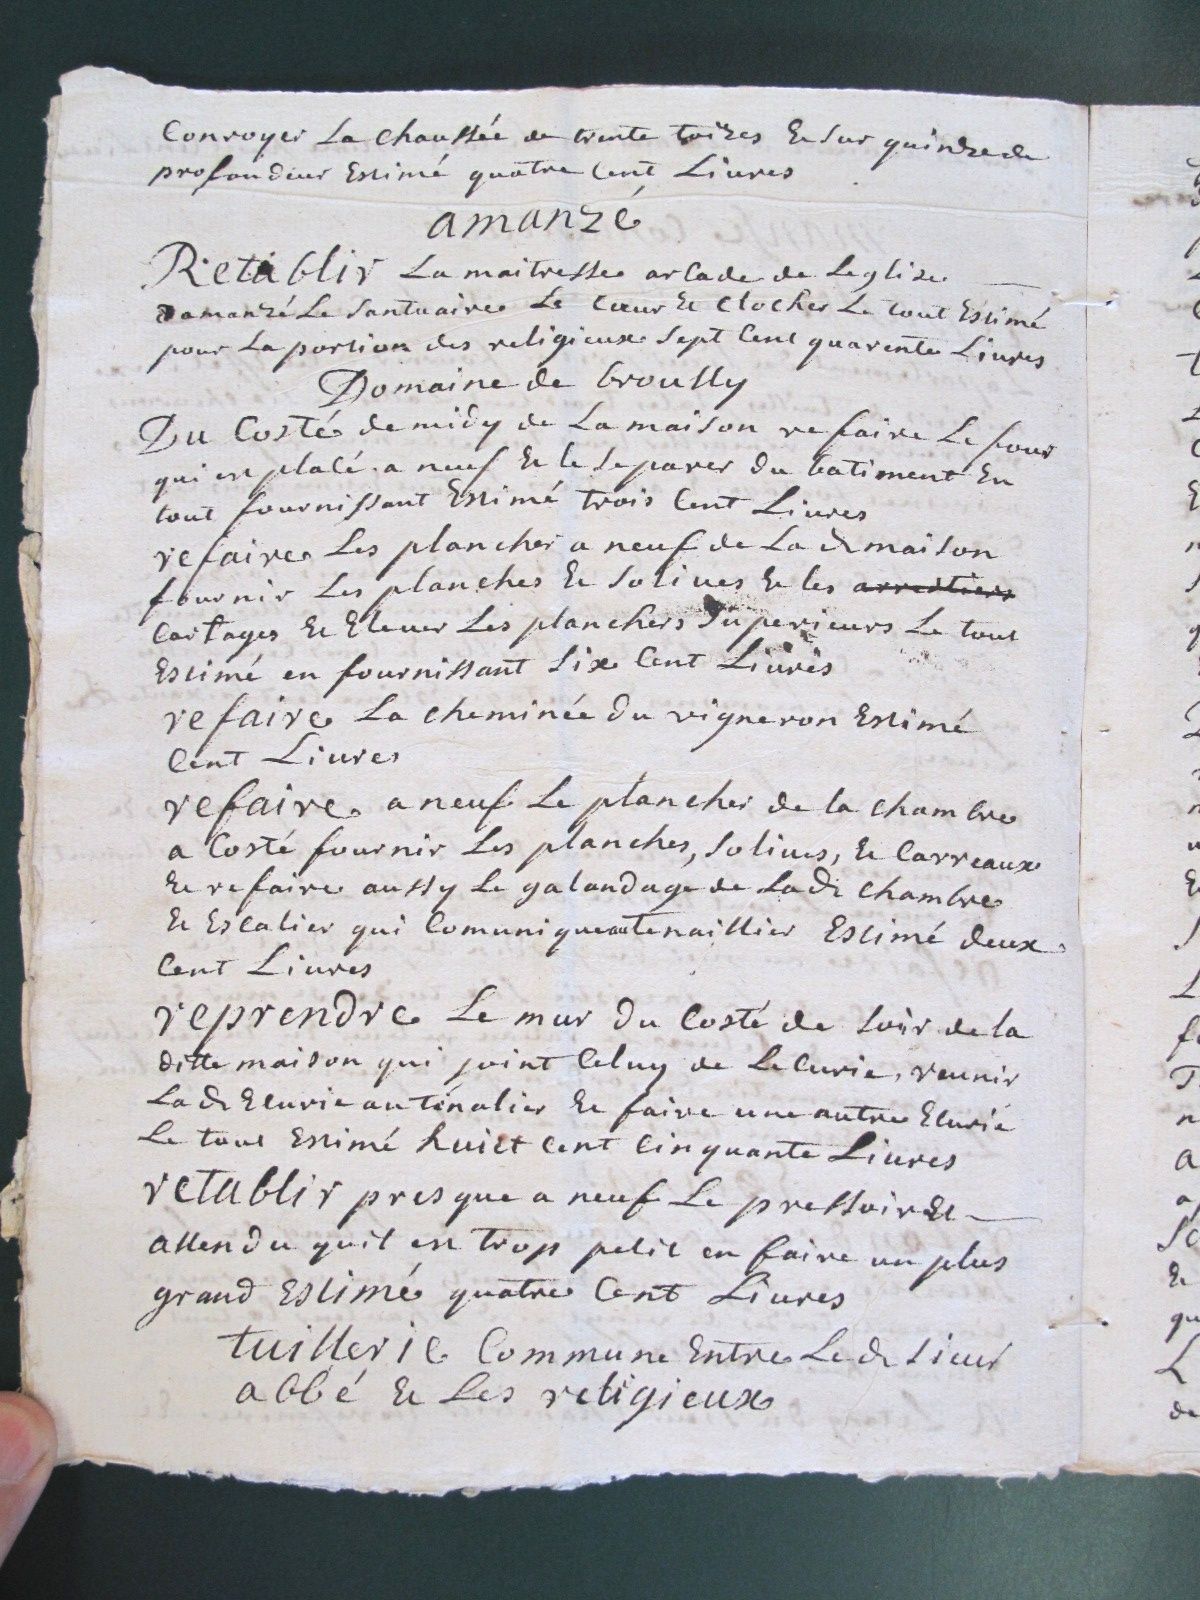 Conroyer La chaussée de trente toizes & sur quindze de
profondeur Estimé quatre Cent Liures
amanzé
Retablir La maitresse arcade de Leglize
damanzé Le santuaire Le Cœur & clocher Le tout Estimé
pour La portion des religieux Sept Cent quarente Liures
Domaine de broussy
Du Costé de midy de La maison refaire Le four
qui est placé a neuf & le separer du batiment En
tout fournissant Estimé trois Cent Liures
refaire Les plancher a neuf de La de maison
fournir Les planches & soliues & les arrestiers
Cartages & Eleuer Les planchers superieurs Le tout
Estimé en fournissant Six Cent Liures
refaire La cheminée du vigneron Estimé
Cent Liures
refaire a neuf Le plancher de la chambre
a Costé fournir Les planches, soliues, & Carreaux
& refaire aussy Le galandage de Lade chambre
& Escalier qui Comunique au tenaillier Estimé deux
Cent Liures
reprendre Le mur du Costé de soir de la
ditte maison qui joint Celuy de Lecurie, reunir
Lade Ecurie au tenalier & faire une autre Ecurie
Le tout Estimé huict Cent Cinquante Liures
retablir presque a neuf Le pressoir Et
attendu quil est trop petit en faire un plus
grand Estimé quatre Cent Liures
tuillerie Commune Entre Le de sieur
abbé & Les religieux